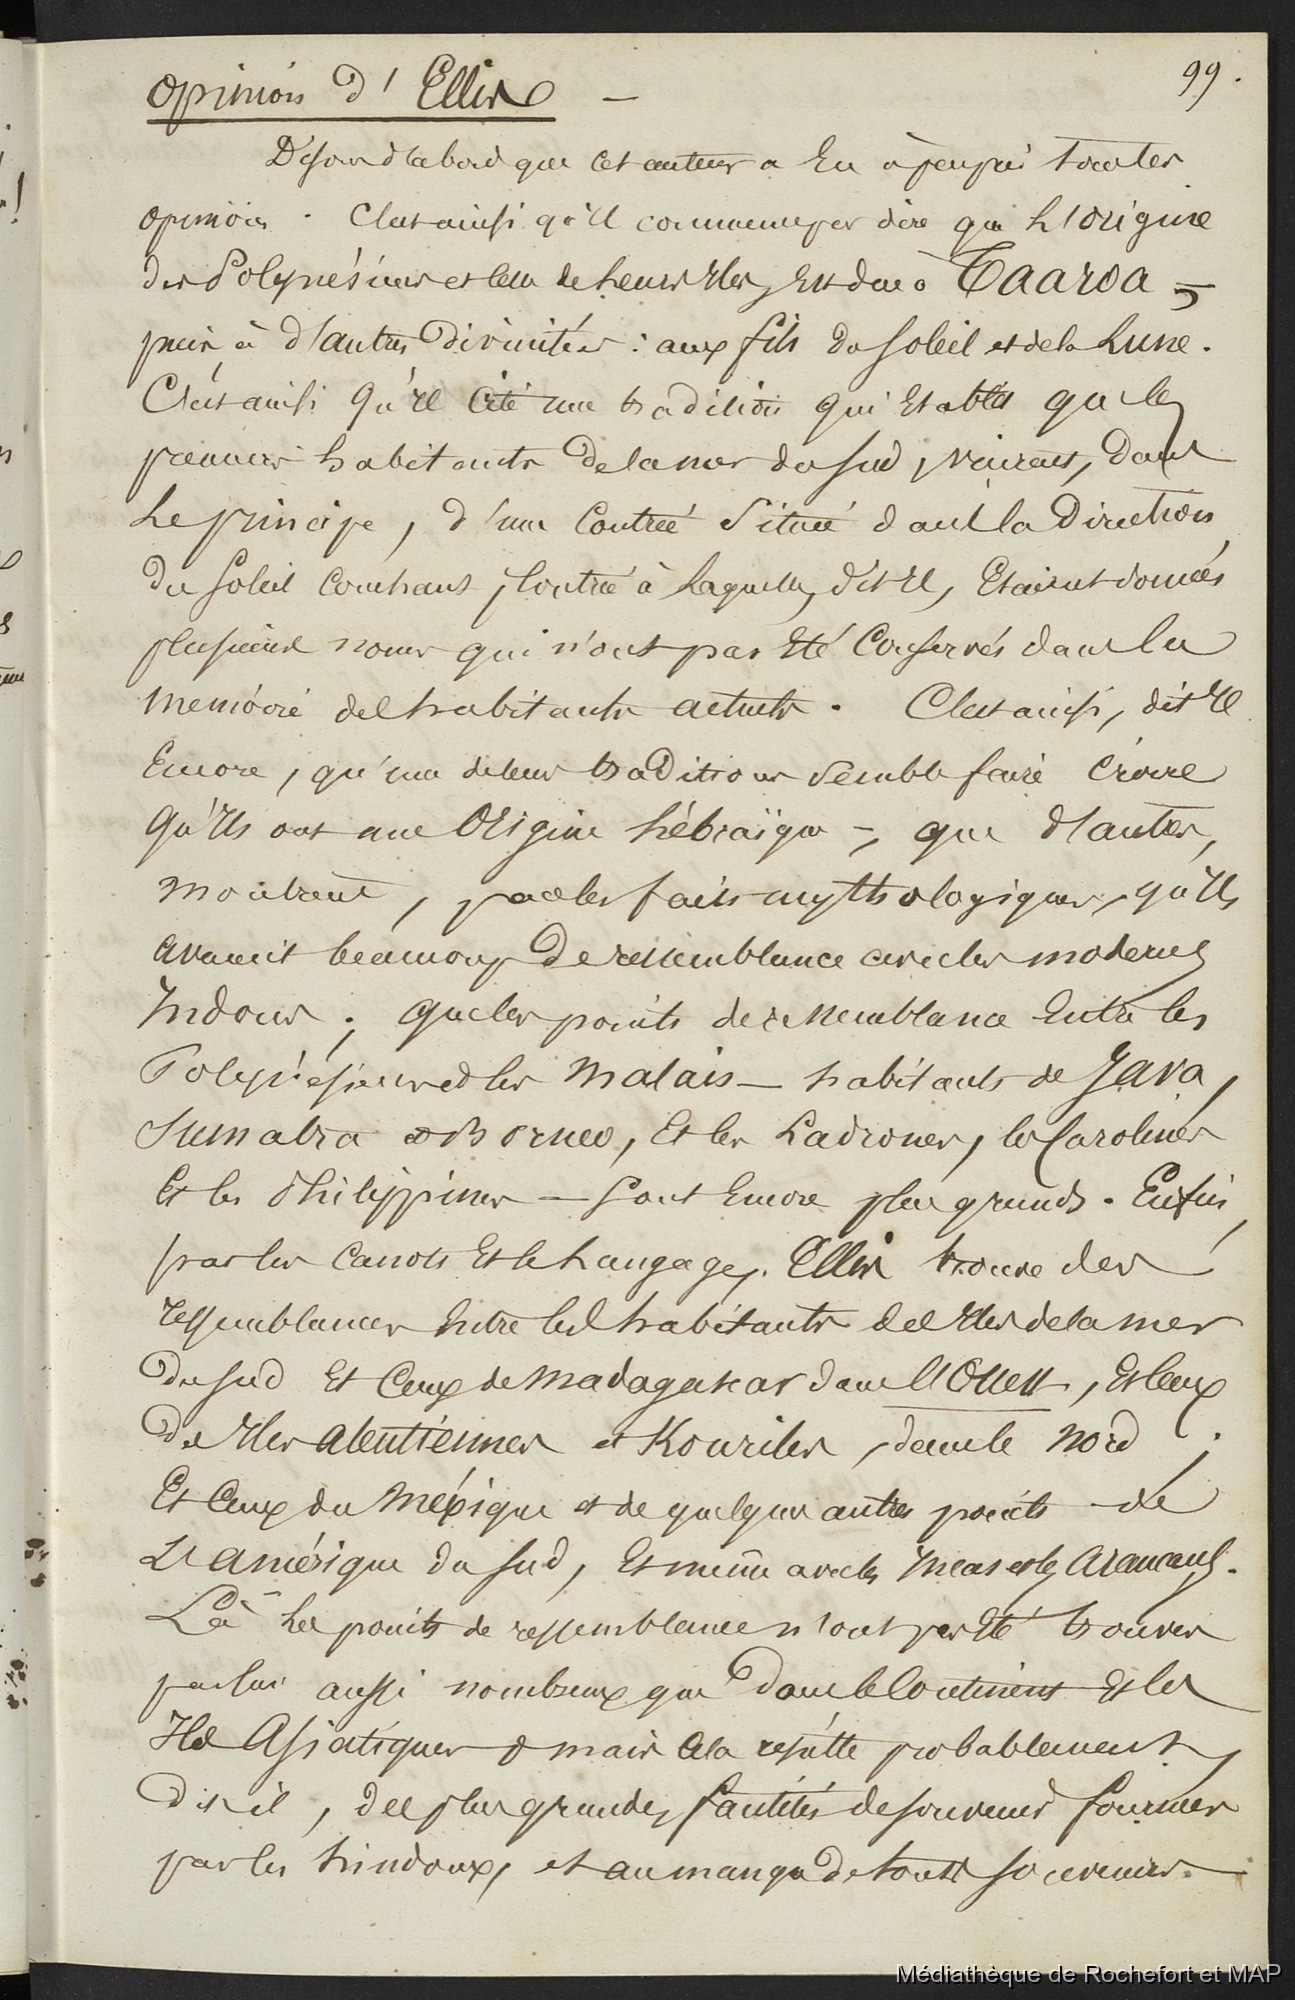 99.
Opinion d'Ellis —
Disons d'abord que cet auteur a Eu à peu près toutes les
opinions. C'est ainsi qu'il commence par dire que L'origine
des Polynésiens et celle de Leurs Iles, Est due à Taaroa,
puis à d'autres Divinités : aux fils du Soleil et de la Lune.
C'est ainsi qu'il cite une tradition qui Etablit que les
premiers habitants de la mer du Sud, vinrent, dans
Le principe, d'une Contrée située dans la Direction
du Soleil Couchant, Contrée à Laquelle, dit-Il, Etaient donnés
plusieurs noms qui n'ont pas Eté Conservés dans la
mémoire des habitants actuels. C'est ainsi, dit Il
Encore, qu'une de leurs traditions semble faire Croire
qu'Ils ont une Origine hébraïque —, que d'autres,
montrent, par les faits mythologiques, qu'Ils
avaient beaucoup De ressemblance avec les modernes
Indous ; que les points de ressemblance Entre les
Polynésiens et les Malais — habitants de Java,
Sumatra et Borneo, Et les Ladrones, les Carolines
Et les Philippines — sont Encore plus grands. Enfin,
par les Canots Et le Langage, Ellis trouve des
ressemblances Entre les habitants des Iles de la mer
Du Sud Et Ceux de Madagascar dans l'Ouest, Et Ceux
des Iles aleutiennes et Kouriles, dans le Nord ;
Et Ceux du Méxique et de quelques autres points de
L'amérique du Sud, Et même avec les Incas et les Araucans.
Là Les points de ressemblance n'ont pas Eté trouvés
par lui aussi nombreux que Dans le Continent Et les
Iles Asiatiques ; mais Cela résulte probablement,
dit-il, des plus grandes facilités de souvenirs fournies
par les hindoux, et au manque De tout souvenir.
Médiathèque de Rochefort et MAP